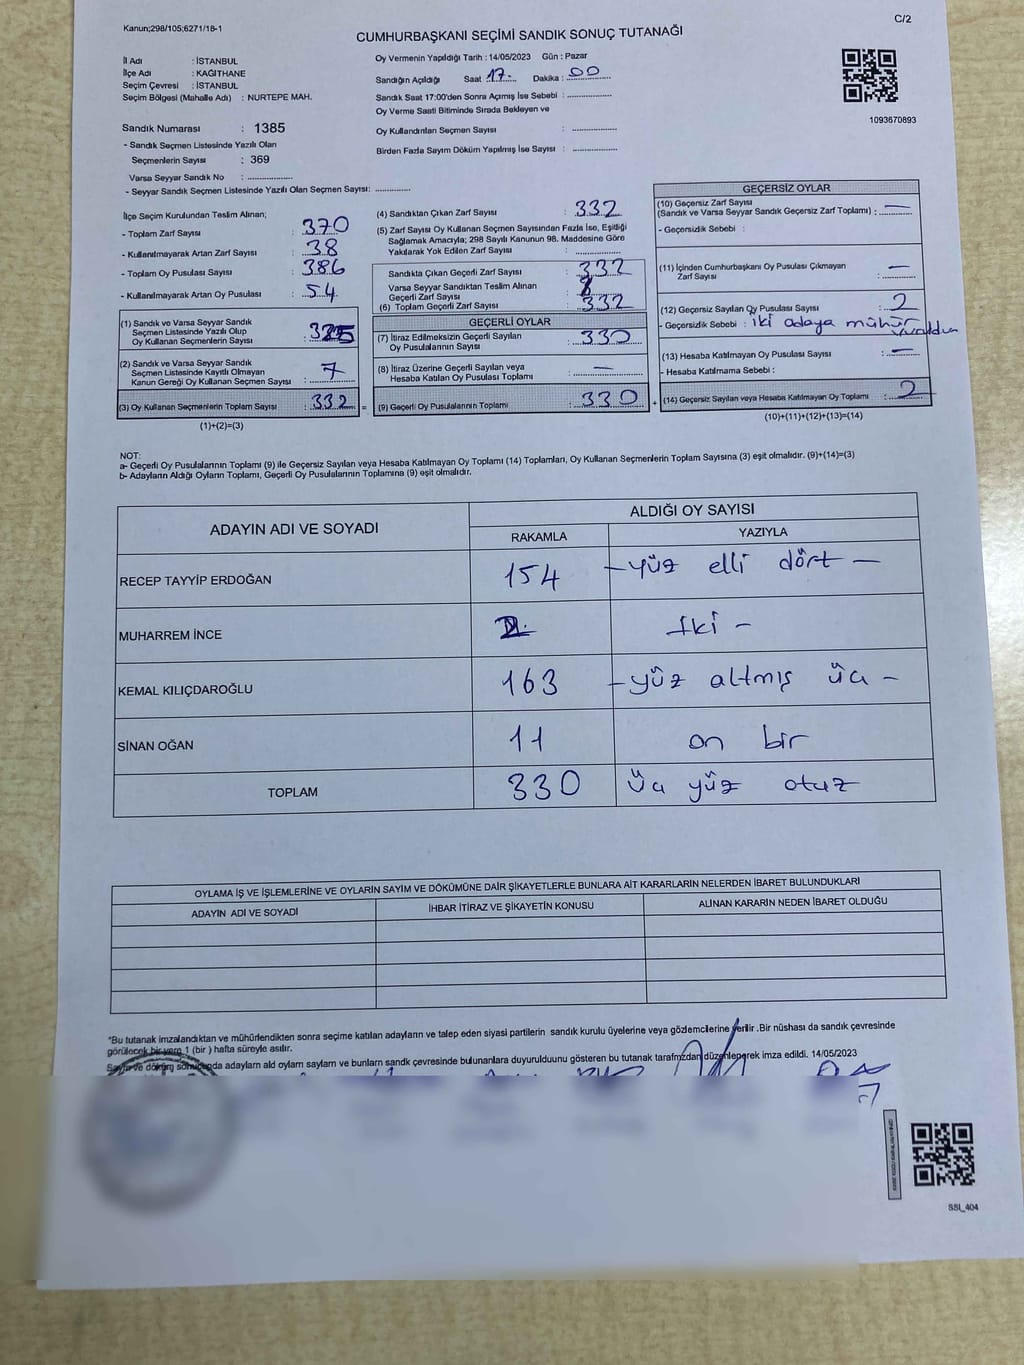 Kanun;298/105;6271/18-1
C/2
CUMHURBAŞKANI SEÇİMİ SANDIK SONUÇ TUTANAĞI
İl Adı : İSTANBUL
İlçe Adı : KAĞITHANE
Seçim Çevresi : İSTANBUL
Seçim Bölgesi (Mahalle Adı) : NURTEPE MAH.
Sandık Numarası : 1385
- Sandık Seçmen Listesinde Yazılı Olan
Seçmenlerin Sayısı : 369
Varsa Seyyar Sandık No :
- Seyyar Sandık Seçmen Listesinde Yazılı Olan Seçmen Sayısı:
Oy Vermenin Yapıldığı Tarih : 14/05/2023 Gün : Pazar
Sandığın Açıldığı Saat 17. Dakika : 00
Sandık Saat 17:00'den Sonra Açımış İse Sebebi :
Oy Verme Saati Bitiminde Sırada Bekleyen ve
Oy Kullandırılan Seçmen Sayısı :
Birden Fazla Sayım Döküm Yapılmış İse Sayısı :
1093670893
İlçe Seçim Kurulundan Teslim Alınan;
- Toplam Zarf Sayısı : 370
- Kullanılmayarak Artan Zarf Sayısı : 38
- Toplam Oy Pusulası Sayısı : 386
- Kullanılmayarak Artan Oy Pusulası : 54
(1) Sandık ve Varsa Seyyar Sandık
Seçmen Listesinde Yazılı Olup
Oy Kullanan Seçmenlerin Sayısı : 325
(2) Sandık ve Varsa Seyyar Sandık
Seçmen Listesinde Kayıtlı Olmayan
Kanun Gereği Oy Kullanan Seçmen Sayısı : 7
(3) Oy Kullanan Seçmenlerin Toplam Sayısı : 332 =
(1)+(2)=(3)
(4) Sandıktan Çıkan Zarf Sayısı : 332
(5) Zarf Sayısı Oy Kullanan Seçmen Sayısından Fazla İse, Eşitliği
Sağlamak Amacıyla; 298 Sayılı Kanunun 98. Maddesine Göre
Yakılarak Yok Edilen Zarf Sayısı :
Sandıkta Çıkan Geçerli Zarf Sayısı : 332
Varsa Seyyar Sandıktan Teslim Alınan
Geçerli Zarf Sayısı :
(6) Toplam Geçerli Zarf Sayısı : 332
GEÇERLİ OYLAR
(7) İtiraz Edilmeksizin Geçerli Sayılan
Oy Pusulalarının Sayısı : 330
(8) İtiraz Üzerine Geçerli Sayılan veya
Hesaba Katılan Oy Pusulası Toplamı : —
(9) Geçerli Oy Pusulalarının Toplamı : 330 +
GEÇERSİZ OYLAR
(10) Geçersiz Zarf Sayısı
(Sandık ve Varsa Seyyar Sandık Geçersiz Zarf Toplamı) : —
- Geçersizlik Sebebi :
(11) İçinden Cumhurbaşkanı Oy Pusulası Çıkmayan
Zarf Sayısı : —
(12) Geçersiz Sayılan Oy Pusulası Sayısı : 2
- Geçersizlik Sebebi : iki adaya mühür
(13) Hesaba Katılmayan Oy Pusulası Sayısı : —
- Hesaba Katılmama Sebebi :
(14) Geçersiz Sayılan veya Hesaba Katılmayan Oy Toplamı : 2
(10)+(11)+(12)+(13)=(14)
NOT:
a- Geçerli Oy Pusulalarının Toplamı (9) ile Geçersiz Sayılan veya Hesaba Katılmayan Oy Toplamı (14) Toplamları, Oy Kullanan Seçmenlerin Toplam Sayısına (3) eşit olmalıdır. (9)+(14)=(3)
b- Adayların Aldığı Oyların Toplamı, Geçerli Oy Pusulalarının Toplamına (9) eşit olmalıdır.
ADAYIN ADI VE SOYADI
ALDIĞI OY SAYISI
RAKAMLA YAZIYLA
RECEP TAYYİP ERDOĞAN 154 - yüz elli dört -
MUHARREM İNCE 2 İki -
KEMAL KILIÇDAROĞLU 163 - yüz altmış üç -
SİNAN OĞAN 11 on bir
TOPLAM 330 üç yüz otuz
OYLAMA İŞ VE İŞLEMLERİNE VE OYLARIN SAYIM VE DÖKÜMÜNE DAİR ŞİKAYETLERLE BUNLARA AİT KARARLARIN NELERDEN İBARET BULUNDUKLARI
ADAYIN ADI VE SOYADI İHBAR İTİRAZ VE ŞİKAYETİN KONUSU ALINAN KARARIN NEDEN İBARET OLDUĞU
*Bu tutanak imzalandıktan ve mühürlendikten sonra seçime katılan adayların ve talep eden siyasi partilerin sandık kurulu üyelerine veya gözlemcilerine verilir .Bir nüshası da sandık çevresinde
görülecek bir yere 1 (bir ) hafta süreyle asılır.
Sayım ve döküm sonucunda adayların ald oyların sayların ve bunların sandk çevresinde bulunanlara duyurulduunu gösteren bu tutanak tarafmzdan düzenlenerek imza edildi. 14/05/2023
SSI_404